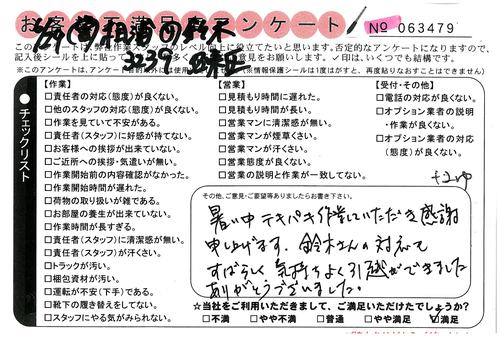 お客様不満足アンケート
No 063479
3239
このアンケートは、弊社作業スタッフのレベル向上に役立てたいと思います。否定的なアンケートになりますので、
記入後シールを上に貼って
ご意見をお願いします。✓印は、いくつでも結構です。
チェックリスト
【作業】
□責任者の対応(態度)が良くない。
□他のスタッフの対応(態度)が良くない。
□作業を見ていて不安がある。
□責任者(スタッフ)に好感が持てない。
□お客様への挨拶が出来ていない。
□ご近所への挨拶・気遣いが無い。
□作業開始前の内容確認がなかった。
□作業開始時間が遅れた。
□荷物の取り扱いが雑である。
□お部屋の養生が出来ていない。
□作業時間が長すぎる。
□責任者(スタッフ)に清潔感が無い。
□責任者(スタッフ)が汗くさい。
□トラックが汚い。
□梱包資材が汚い。
□運転が不安(下手)である。
□靴下の履き替えをしてない。
□スタッフにやる気がみられない。
【営業】
□見積もり時間に遅れた。
□見積もり時間が長い。
□営業マンに清潔感が無い。
□営業マンが煙草くさい。
□営業マンが汗くさい。
□営業態度が良くない。
□営業の説明と作業が一致してない。
【受付・その他】
□電話の対応が良くない。
□オプション業者の説明
・作業が良くない。
□オプション業者の対応
(態度)が良くない。
その他、ご意見・ご要望等ありましたらお書き下さい。
暑い中テキパキ作業していただき感謝
申し上げます。鈴木さんの対応も
すばらしく気持ちよく引越ができました
ありがとうございました。
☆当社をご利用いただきまして、ご満足いただけたでしょうか?
□不満 □やや不満 □普通 □やや満足 ☑満足